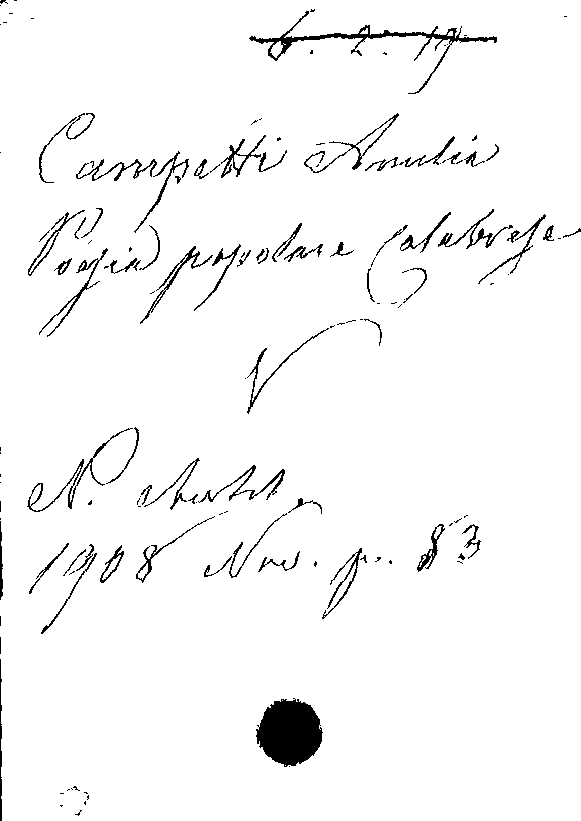 6. 2. 17
Campetti Amelia
Poesia popolare Calabrese
V
N. Antol.
1908 Nov. p. 83